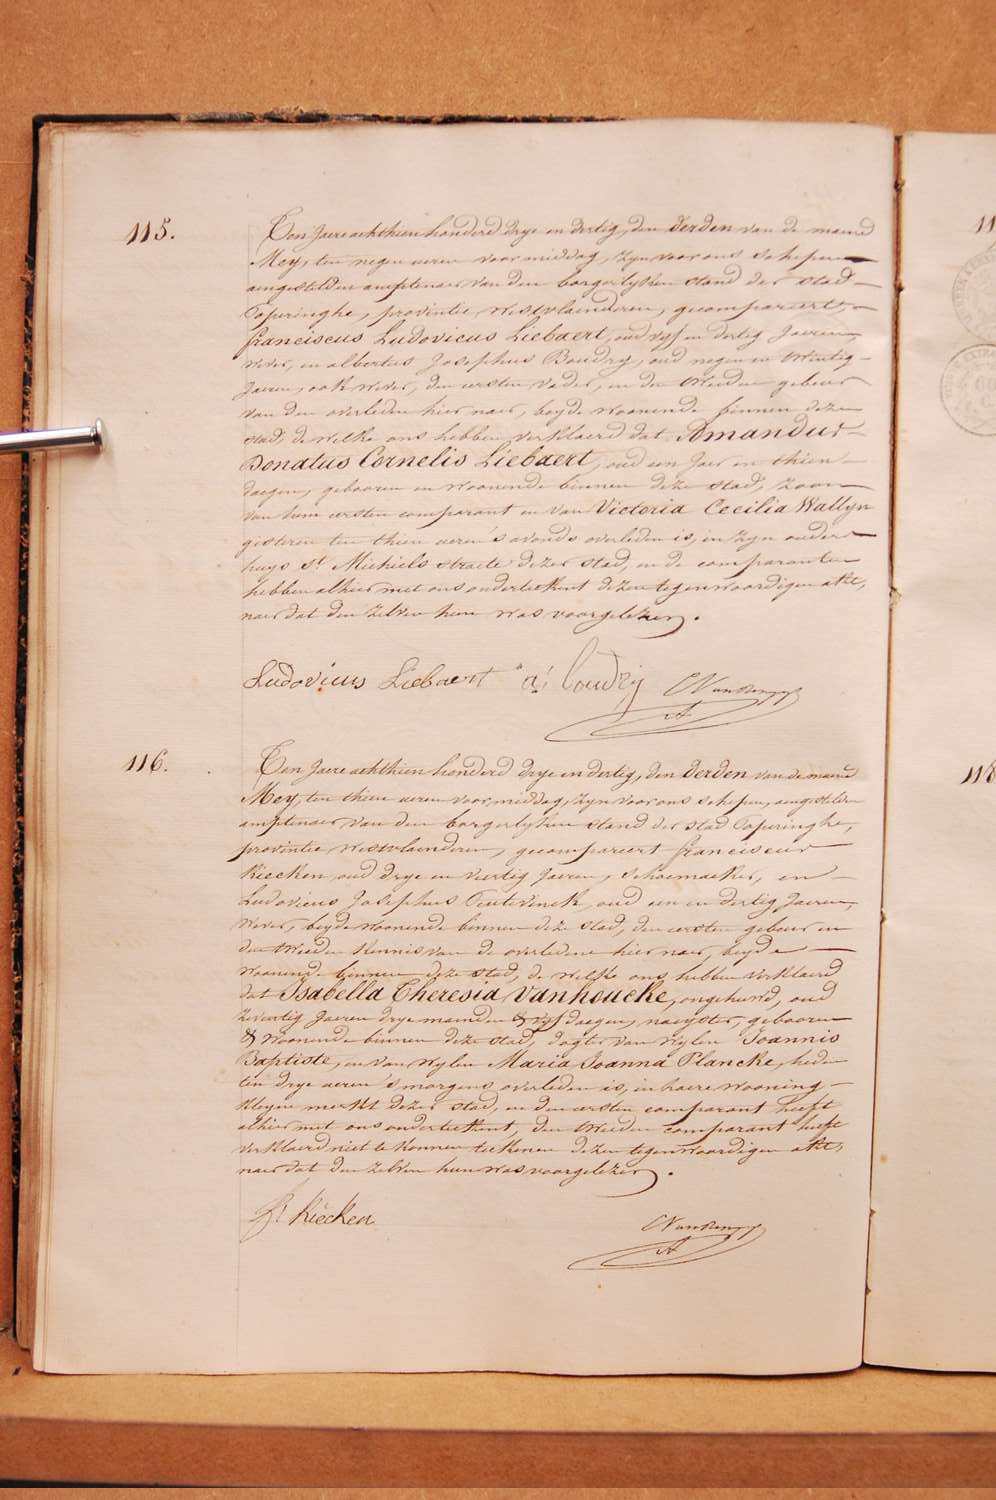 115.
Ten Jaere achthien honderd drye en dertig, den derden van de maend
Mey, ten negen ueren voormiddag, zyn voor ons schepen
aengestelden amptenaer van den borgerlyken stand der stad
Poperinghe, provintie Westvlaenderen, gecompareert,
franciscus Ludovicus Liebaert, oud vyf en dertig Jaeren,
wever, en albertus Josephus Boudry, oud negen en twintig
Jaeren, ook wever, den eersten vader, en den tweeden gebeur
van den overleden hier naer, beyde woonende binnen deze
stad, de welke ons hebben verklaerd dat Amandus
Donatus Cornelis Liebaert, oud een Jaer en thien
daegen, gebooren en woonende binnen deze stad, zoon
van hem eersten comparant en van Victoria Cecilia Wallyn
gisteren ten thien ueren 's avonds overleden is, in zyn ouders
huys St Michiels straete dezer stad, en de comparanten
hebben alhier met ons onderteekent dezen tegenwoordigen akt,
naer dat den zelven hun was voorgelezen.
Ludovicus Liebaert a: boudry
116.
Ten Jaere achthien honderd drye en dertig, den derden van de maend
Mey, ten thien ueren voormiddag, zyn voor ons schepen, aengestelden
amptenaer van den borgerlyken stand der stad Poperinghe,
provintie Westvlaenderen, gecompareert franciscus
Kiecken, oud drye en veertig Jaeren, schoemaeker, en
Ludovicus Josephus oud een en dertig Jaeren,
wever, beyde woonende binnen deze stad, den eersten gebeur en
den tweeden kennis van de overledene hier naer, beyde
woonende binnen deze stad, de welke ons hebben verklaerd
dat Isabella Theresia Vanhoucke, ongehuwd, oud
zeventig Jaeren drye maenden & vyf daegen, naeyster, gebooren
& woonende binnen deze stad, dogter van wylen Joannis
Baptiste, en van wylen Maria Joanna Plancke, heden
ten drye ueren 's morgens overleden is, in haere wooning
kleyne merkt dezer stad, en den eersten comparant heeft
alhier met ons onderteekent, den tweeden comparant heeft
verklaerd niet te konnen teekenen dezen tegenwoordigen akt,
naer dat den zelven hun was voorgelezen.
fr Kiecken
11
118